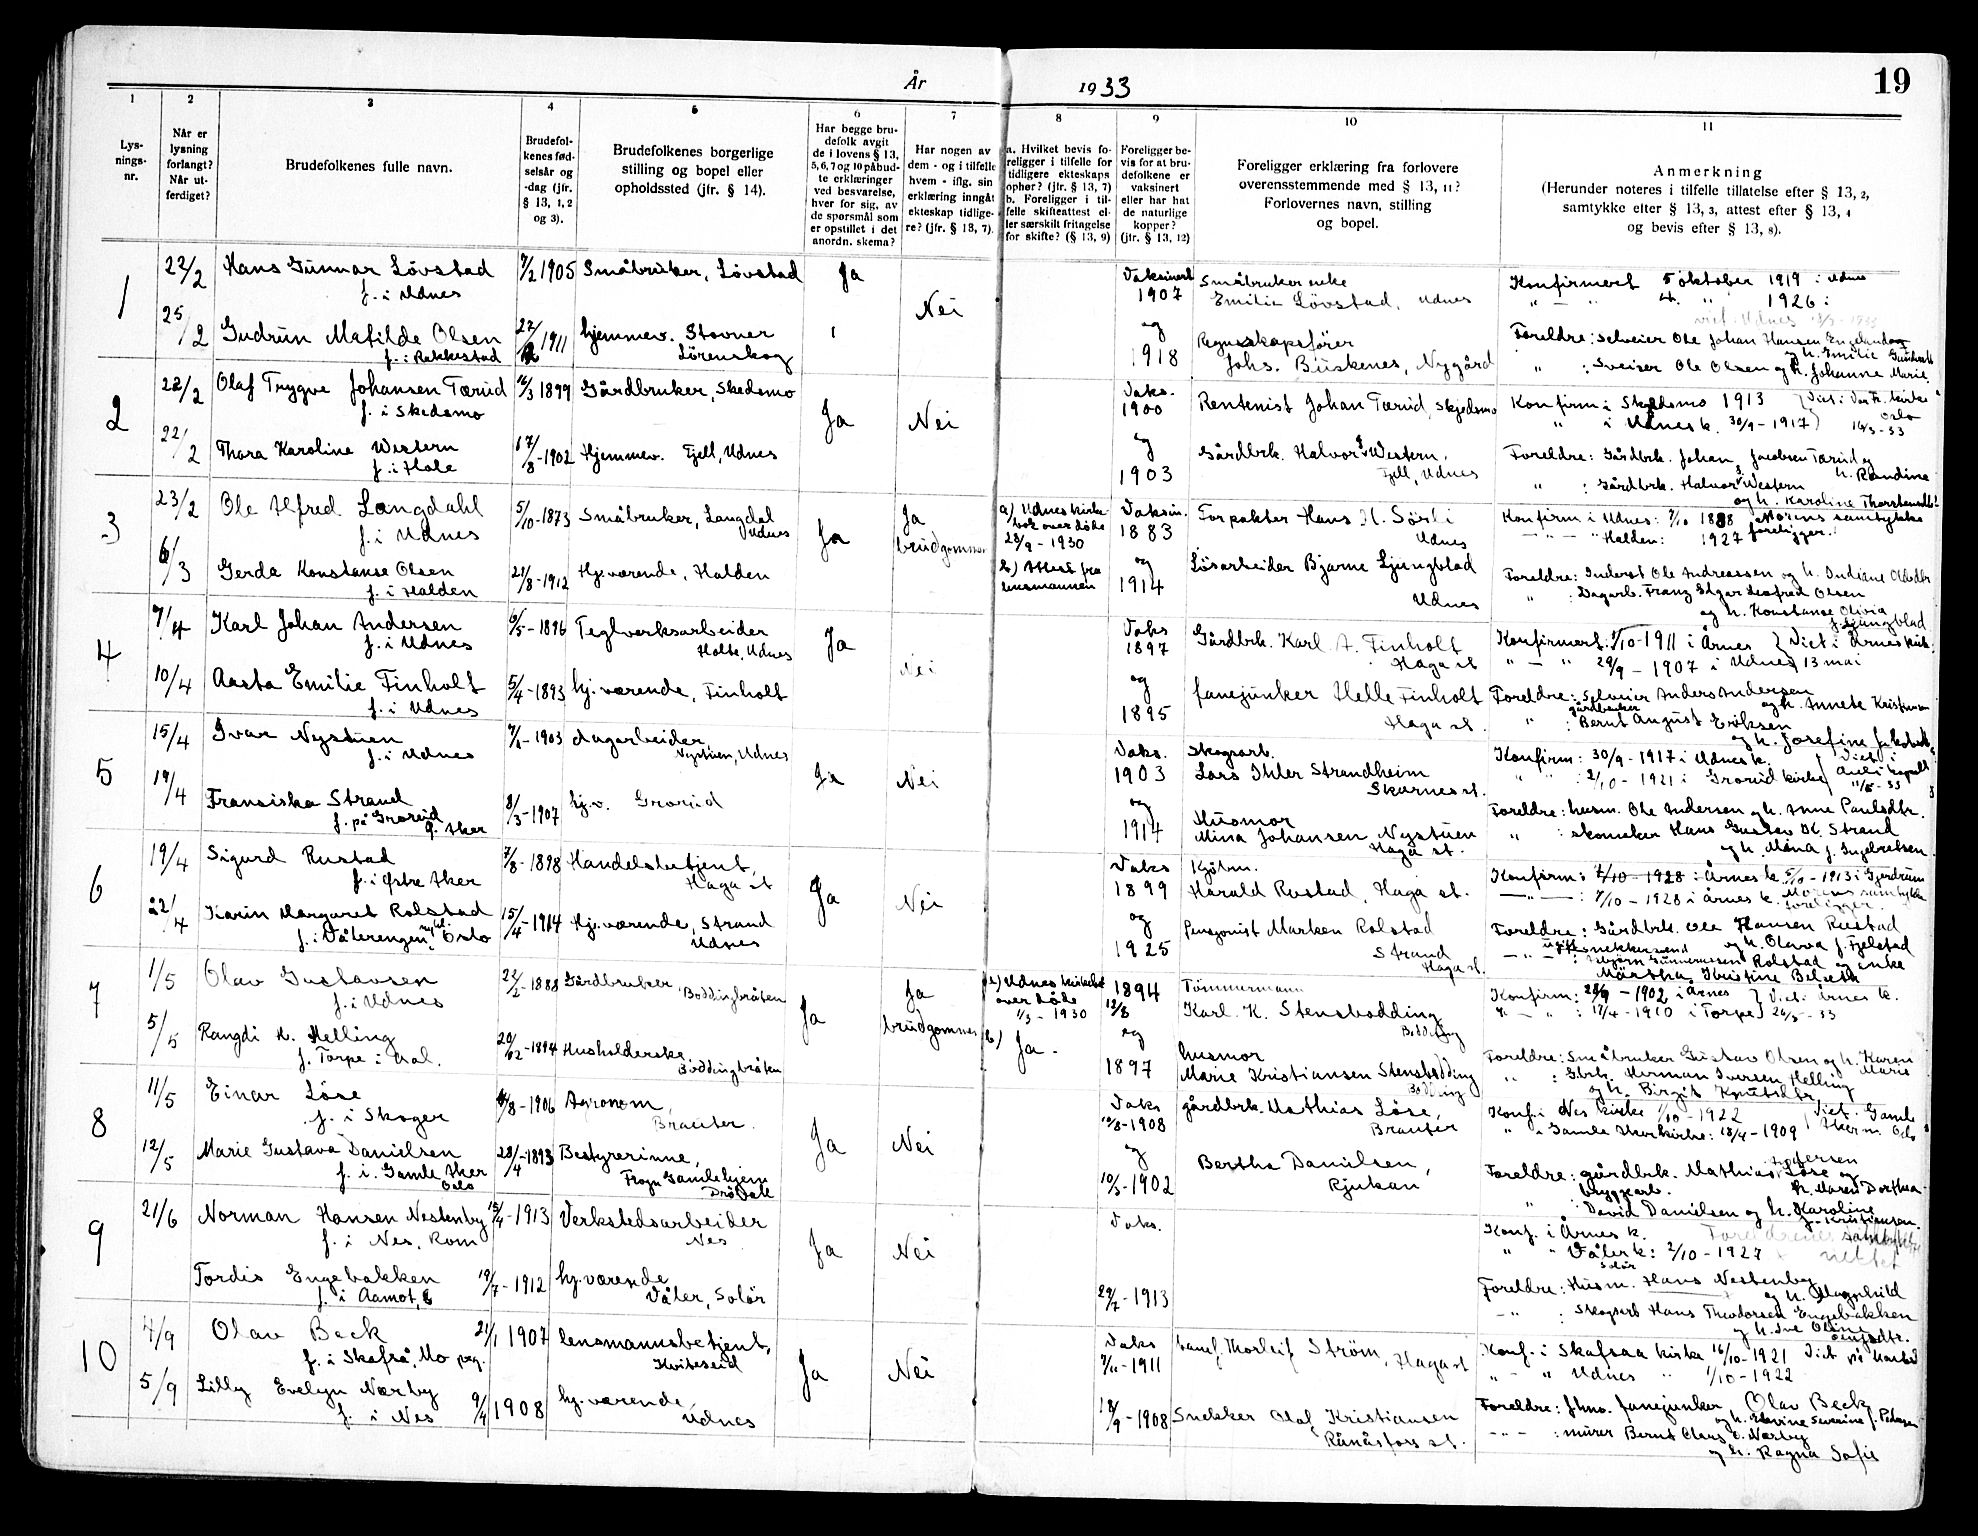 År 1933
19
1 2 3 4 5 6 7 8 9 10 11
Lysningsnr.
Når er lysning forlangt? Når utferdiget?
Brudefolkenes fulle navn.
Brudefolkenes fødselsår og -dag (jfr. § 13, 1, 2 og 3).
Brudefolkenes borgerlige stilling og bopel eller opholdssted (jfr. § 14).
Har begge brudefolk avgit de i lovens § 13, 5, 6, 7 og 10 påbudte erklæringer ved besvarelse, hver for sig, av de spørsmål som er opstillet i det anordn. skema?
Har nogen av dem - og i tilfelle hvem - iflg. sin erklæring inngått ekteskap tidligere? (jfr. § 13, 7).
a. Hvilket bevis foreligger i tilfelle for tidligere ekteskaps ophør? (jfr. § 13, 7) b. Foreligger i tilfelle skifteattest eller særskilt fritagelse for skifte? (§ 13, 9)
Foreligger bevis for at brudefolkene er vaksinert eller har hat de naturlige kopper? (jfr. § 13, 12)
Foreligger erklæring fra forlovere overensstemmende med § 13, 11? Forlovernes navn, stilling og bopel.
Anmerkning (Herunder noteres i tilfelle tillatelse efter § 13, 2, samtykke efter § 13, 3, attest efter § 13, 4 og bevis efter § 13, 8).
1
22/2 Hans Gunnar Løvstad 7/2 1905 Småbruker, Løvstad Ja
f. i Udnes
Nei
Vaksinert 1907
Småbrukerenke
Emilie Løvstad, Udnes
Konfirmert 5 oktober 1919 i Udnes
" — " 4. " 1926 i
25/2 Gudrun Matilde Olsen 1911 hjemmev. Stovner
f. i Rakkestad Lørenskog
og 1918
Regnskapsfører
Johs. Buskenes, Nygård
Foreldre: selveier Ole Johan Hansen
og h. Emilie
" : Sveiser Ole Olsen og h. Johanne Marie
2
22/2 Olaf Trygve Johansen Tærud 1899 Gårdbruker, Skedsmo
f. i Skedsmo
Ja Nei
Vaks. 1900
Rentenist Johan Tærud, Skjedsmo
Konfirm. i Skedsmo 1913
" i Udnes k. 30/9 - 1917
Oslo
16/3-33
22/2 Thora Karoline Western 17/8-1902 Hjemmev. Fjell, Udnes
f. i Hole
og 1903
Gårdbrk. Halvor Western,
Fjell, Udnes
Foreldre: Gårdbrk. Johan Jacobsen Tærud og
h. Randine
" : Gårdbrk. Halvor Western
og h. Karoline
3
23/2 Ole Alfred Langdahl 5/10-1873 Småbruker, Langdal
f. i Udnes Udnes
Ja
Ja brudgommen
a) Udnes kirkebok over døde
23/9 - 1930
b) Attest fra lensmannen
Vaksin. 1883
Forpakter Hans H. Sørli
Udnes
Konfirm i Udnes: 7/10 1888 Morens samtykke
— " — " Halden: 1927 foreligger.
6/3 Gerda Konstanse Olsen 21/8-1912 Hj.værende, Halden
f. i Halden
og 1914
Løsarbeider Bjarne Ljungblad
Udnes
Foreldre: Inderst Ole Andreassen og h. Indiane
" : Dagarb. Franz Edgar Olsen
og h. Konstanse Olivia
f. Ljungblad
4
7/4 Karl Johan Andersen 6/5-1896 Teglverksarbeider
f. i Udnes Holte, Udnes
Ja Nei
Vaks 1897
Gårdbrk. Karl A. Finholt
Haga st
Konfirmert 1/10-1911 i Årnes Viet i Årnes kirk.
" — " 29/9 - 1907 i Udnes 13 mai
10/4 Aasta Emilie Finholt 5/4-1893 hj.værende, Finholt
f. i Udnes
og 1895
fanejunker Helle Finholt
Haga st.
Foreldre: Selveier Anders Andersen
og h. Annete
" : gårdbruker Bernt August Eriksen
og h. Josefine
5
15/4 Ivar Nystuen 1903 dagarbeider,
f. i Udnes Nystuen, Udnes
Ja Nei
Vaks. 1903
Skogsarb.
Lars Ihler Strandheim
Skarnes st.
Konfirm: 30/9-1917 i Udnes k. Viet i
" " : 2/10-1921 i Grorud kirke
19/4 Fransiska Strand 8/3-1907 hj.v. Grorud
f. på Grorud
Ø. Aker
og 1914
Husmor
Mina Johansen Nystuen
Haga st.
Foreldre: husm. Ole Andersen og h. Anne Paulsdtr.
" : skomaker Hans Gustav Strand
og h. Mina f. Ingebretsen.
6
19/4 Sigurd Rustad 7/8-1898 Handelsbetjent,
f. i Østre Aker Haga st
Ja Nei
Vaks 1899
Kjøbm.
Harald Rustad, Haga st.
Konfirm: 7/10-1928 i Årnes k. 5/10-1913 i Gjerdrum
— " — : 7/10-1928 i Årnes k. Morens samtykke
foreligger
22/4 Karin Margaret Rolstad 15/4-1914 Hj.værende, Strand
f. i Vålerengen, Oslo Udnes
og 1925
Pensjonist Marken Rolstad
Strand
Haga st.
Foreldre: Gårdbrk. Ole Hansen Rustad
og h. Olava f. Fjelstad
Rolstad og enke
Martha Kristine
7
1/5 Olav Gustavsen 22/2-1888 Gårdbruker, Boddingbråten
f. i Udnes
Ja
Ja brudgommen
a) Udnes kirkebok
over døde
1/3 - 1930
b) Ja.
1894
Tømmermann
Karl. K. Stensbodding
Bodding
Konfirm: 28/9 - 1902 i Årnes Viet i Årnes k.
" — " : 17/4 - 1910 i Torpe 26/5 - 33
5/5 Rangdi H. Helling 20/12-1894 Husholderske,
f. Torpe i Aal. Boddingbråten
og 1897
husmor
Marie Kristiansen Stensbodding
Bodding
Foreldre: Småbruker Gustav Olsen og h. Karen Marie
" : Gbrk. Herman Iversen Helling
og h. Birgit Knutsdtr
8
11/5 Einar Løse 1906 Agronom,
f. i Skoger Brauter.
Ja Nei
Vaks
gårdbrk. Mathias Løse,
Brauter
Konf. i Nes kirke 1/10-1922 Viet. Gamle
" i Gamle Akerkirke: 18/4-1909 Aker Oslo
12/5 Marie Gustava Danielsen 28/4-1893 Bestyrerinne,
f. i Gamle Aker Frogn Gamlehjem
Oslo Drøbak
og 10/5-1902
Bertha Danielsen,
Rjukan
Foreldre: gårdbrk. Mathias Pedersen Løse og
h. Maren Dorthea
" : bryggearb. David Danielsen og h. Karoline
f. Kristiansen.
9
21/6 Norman Hansen Nestenby 15/4-1913 Verkstedsarbeider
f. i Nes, Rom Nes
Ja Nei
Vaks.
Konf. i Årnes k. Foreldrenes samtykke
" " Våler k: 2/10-1927 nektet
Solør
Tordis Engebakken 19/7-1912 hj.værende
f. i Aamot, Våler, Solør
29/7-1913
Foreldre: Husm. Hans Nestenby
og h. Magnhild
— " — : Skogsarb Hans Theodorsen Engebakken
og h.
10
4/9 Olav Beck 21/1 1907 lensmannsbetjent,
f. i Skafså, Mo pgj. Kviteseid
Ja Nei
Vaks
7/11-1911
Lensm. Thorleif Strøm, Haga st
Konf. i Skafsaa kirke 16/10-1921 Viet på
" - " Udnes " 1/10-1922
5/9 Lilly Evelyn Nærby 9/4 1908 hj.værende,
f. i Nes Udnes
1908
Snekker Olaf Kristiansen
Rånåsfoss st.
Foreldre: fhv. fanejunker Olav Beck
og h. Severine f.
— " — : murer Bernt Claus E. Nærby
og h. Ragna Sofie